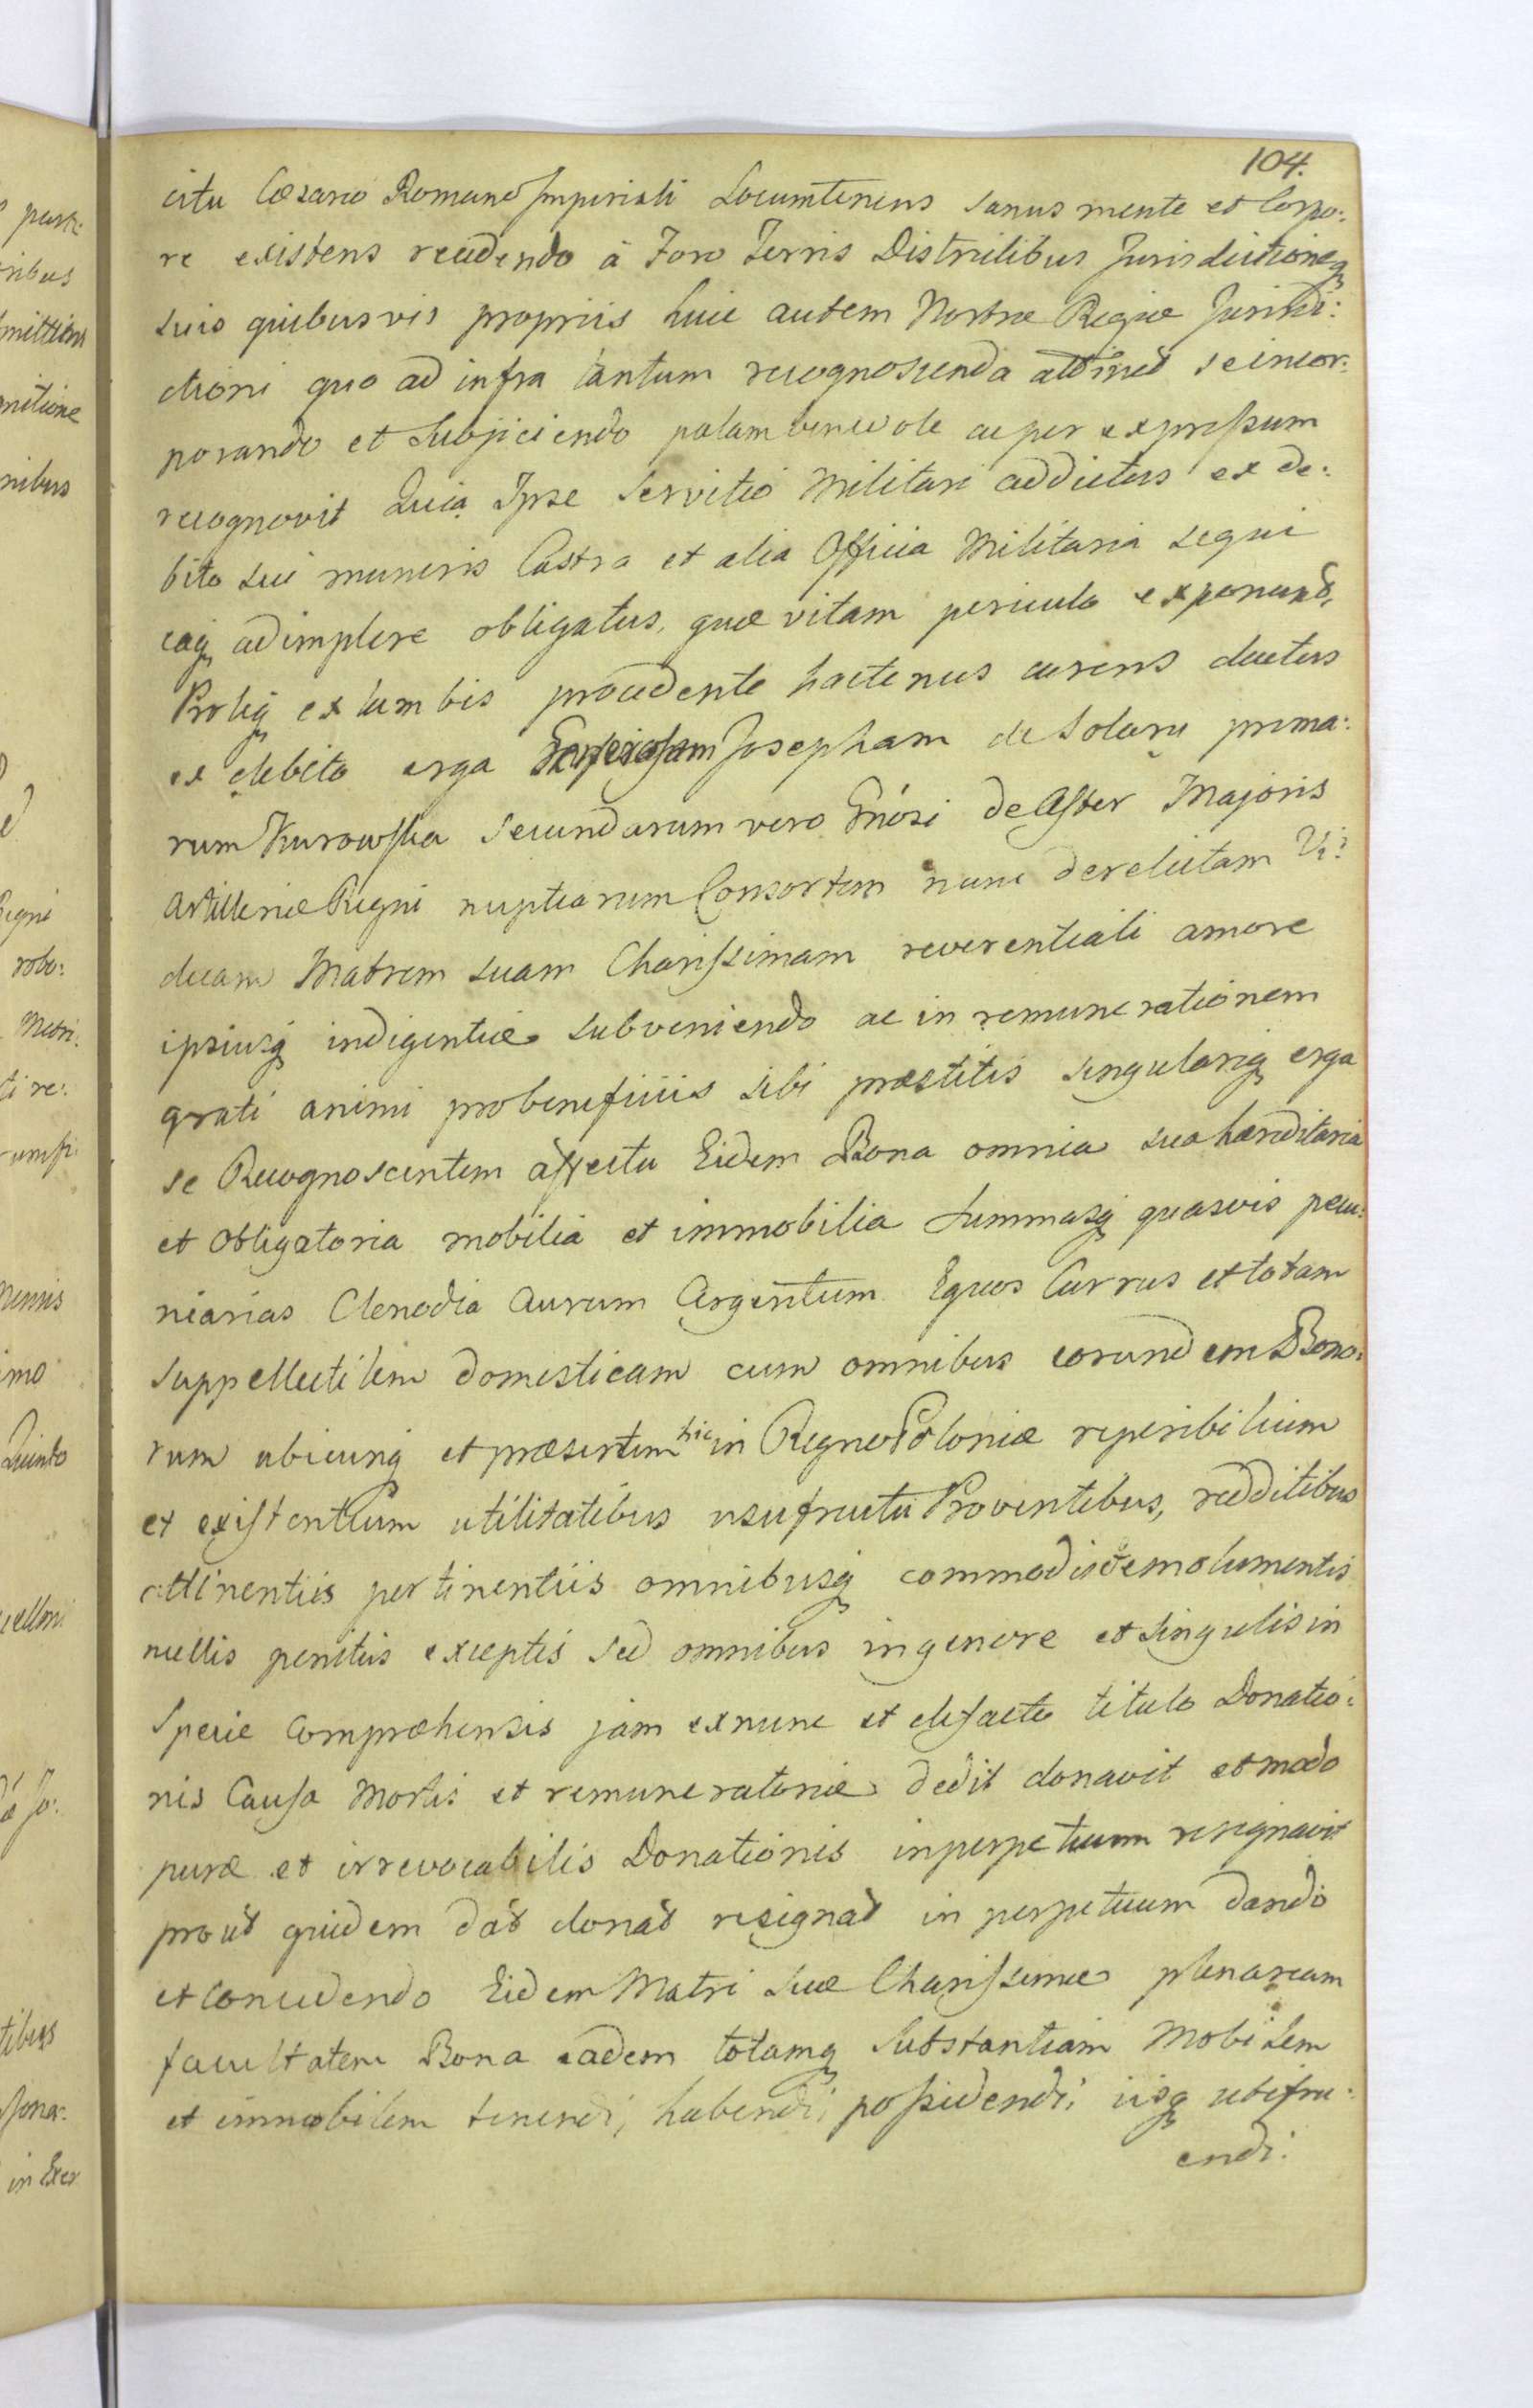 104.
citu Cæsario Romano Imperiali Locumtenens sanus mente et Corpo:
re existens recedendo à Foro Terris Districtibus Jurisdictioneq
suis quibusvis propriis huic autem Nostræ Regiæ Jurisdi:
ctioni quo ad infra tantum recognoscenda attinet se incor:
porando et subjiciendo palam benevole ac per expressum
recognovit Quia Ipse Servitio Militari addictus ex de:
bito sui muneris Castra et alia Officia Militaria sequi
eaq adimplere obligatus, quæ vitam periculo exponunt,
Proleq ex lumbis procedente hactenus carens ductus
ex debito erga Josepham de Solary prima:
rum Kurowska secundarum vero Gnosi de Aster Majoris
Artilleriæ Regni nuptiarum Consortem nunc derelictam Vi:
duam Matrem suam Charissimam reverentiali amore
ipsiusq indigentiæ subveniendo ac in remunerationem
grati animi pro beneficiis sibi præstitis singulariq erga
se Recognoscentem affectu Eidem Bona omnia sua hæreditaria
et obligatoria mobilia et immobilia Summasq quasvis pecu:
niarias Clenodia Aurum Argentum Equos Currus et totam
suppellectilem domesticam cum omnibus eorundem Bono:
rum ubicunq et præsertim hic in Regno Poloniæ reperibilium
et existentium utilitatibus usufructu Proventibus, redditibus
attinentiis pertinentiis omnibusq commodis et emolumentis
nullis penitus exceptis sed omnibus in genere et singulis in
Specie compræhensis jam ex nunc et de facto titulo Donatio:
nis Causa Mortis et remuneratoriæ dedit donavit et modo
puræ et irrevocabilis Donationis in perpetuum resignavit
prout quidem dat donat resignat in perpetuum dando
et concedendo Eidem Matri suæ Charissimæ plenariam
facultatem Bona eadem totamq Substantiam Mobilem
et immobilem tenendi, habendi, possidendi, iisq utifru:
endi: